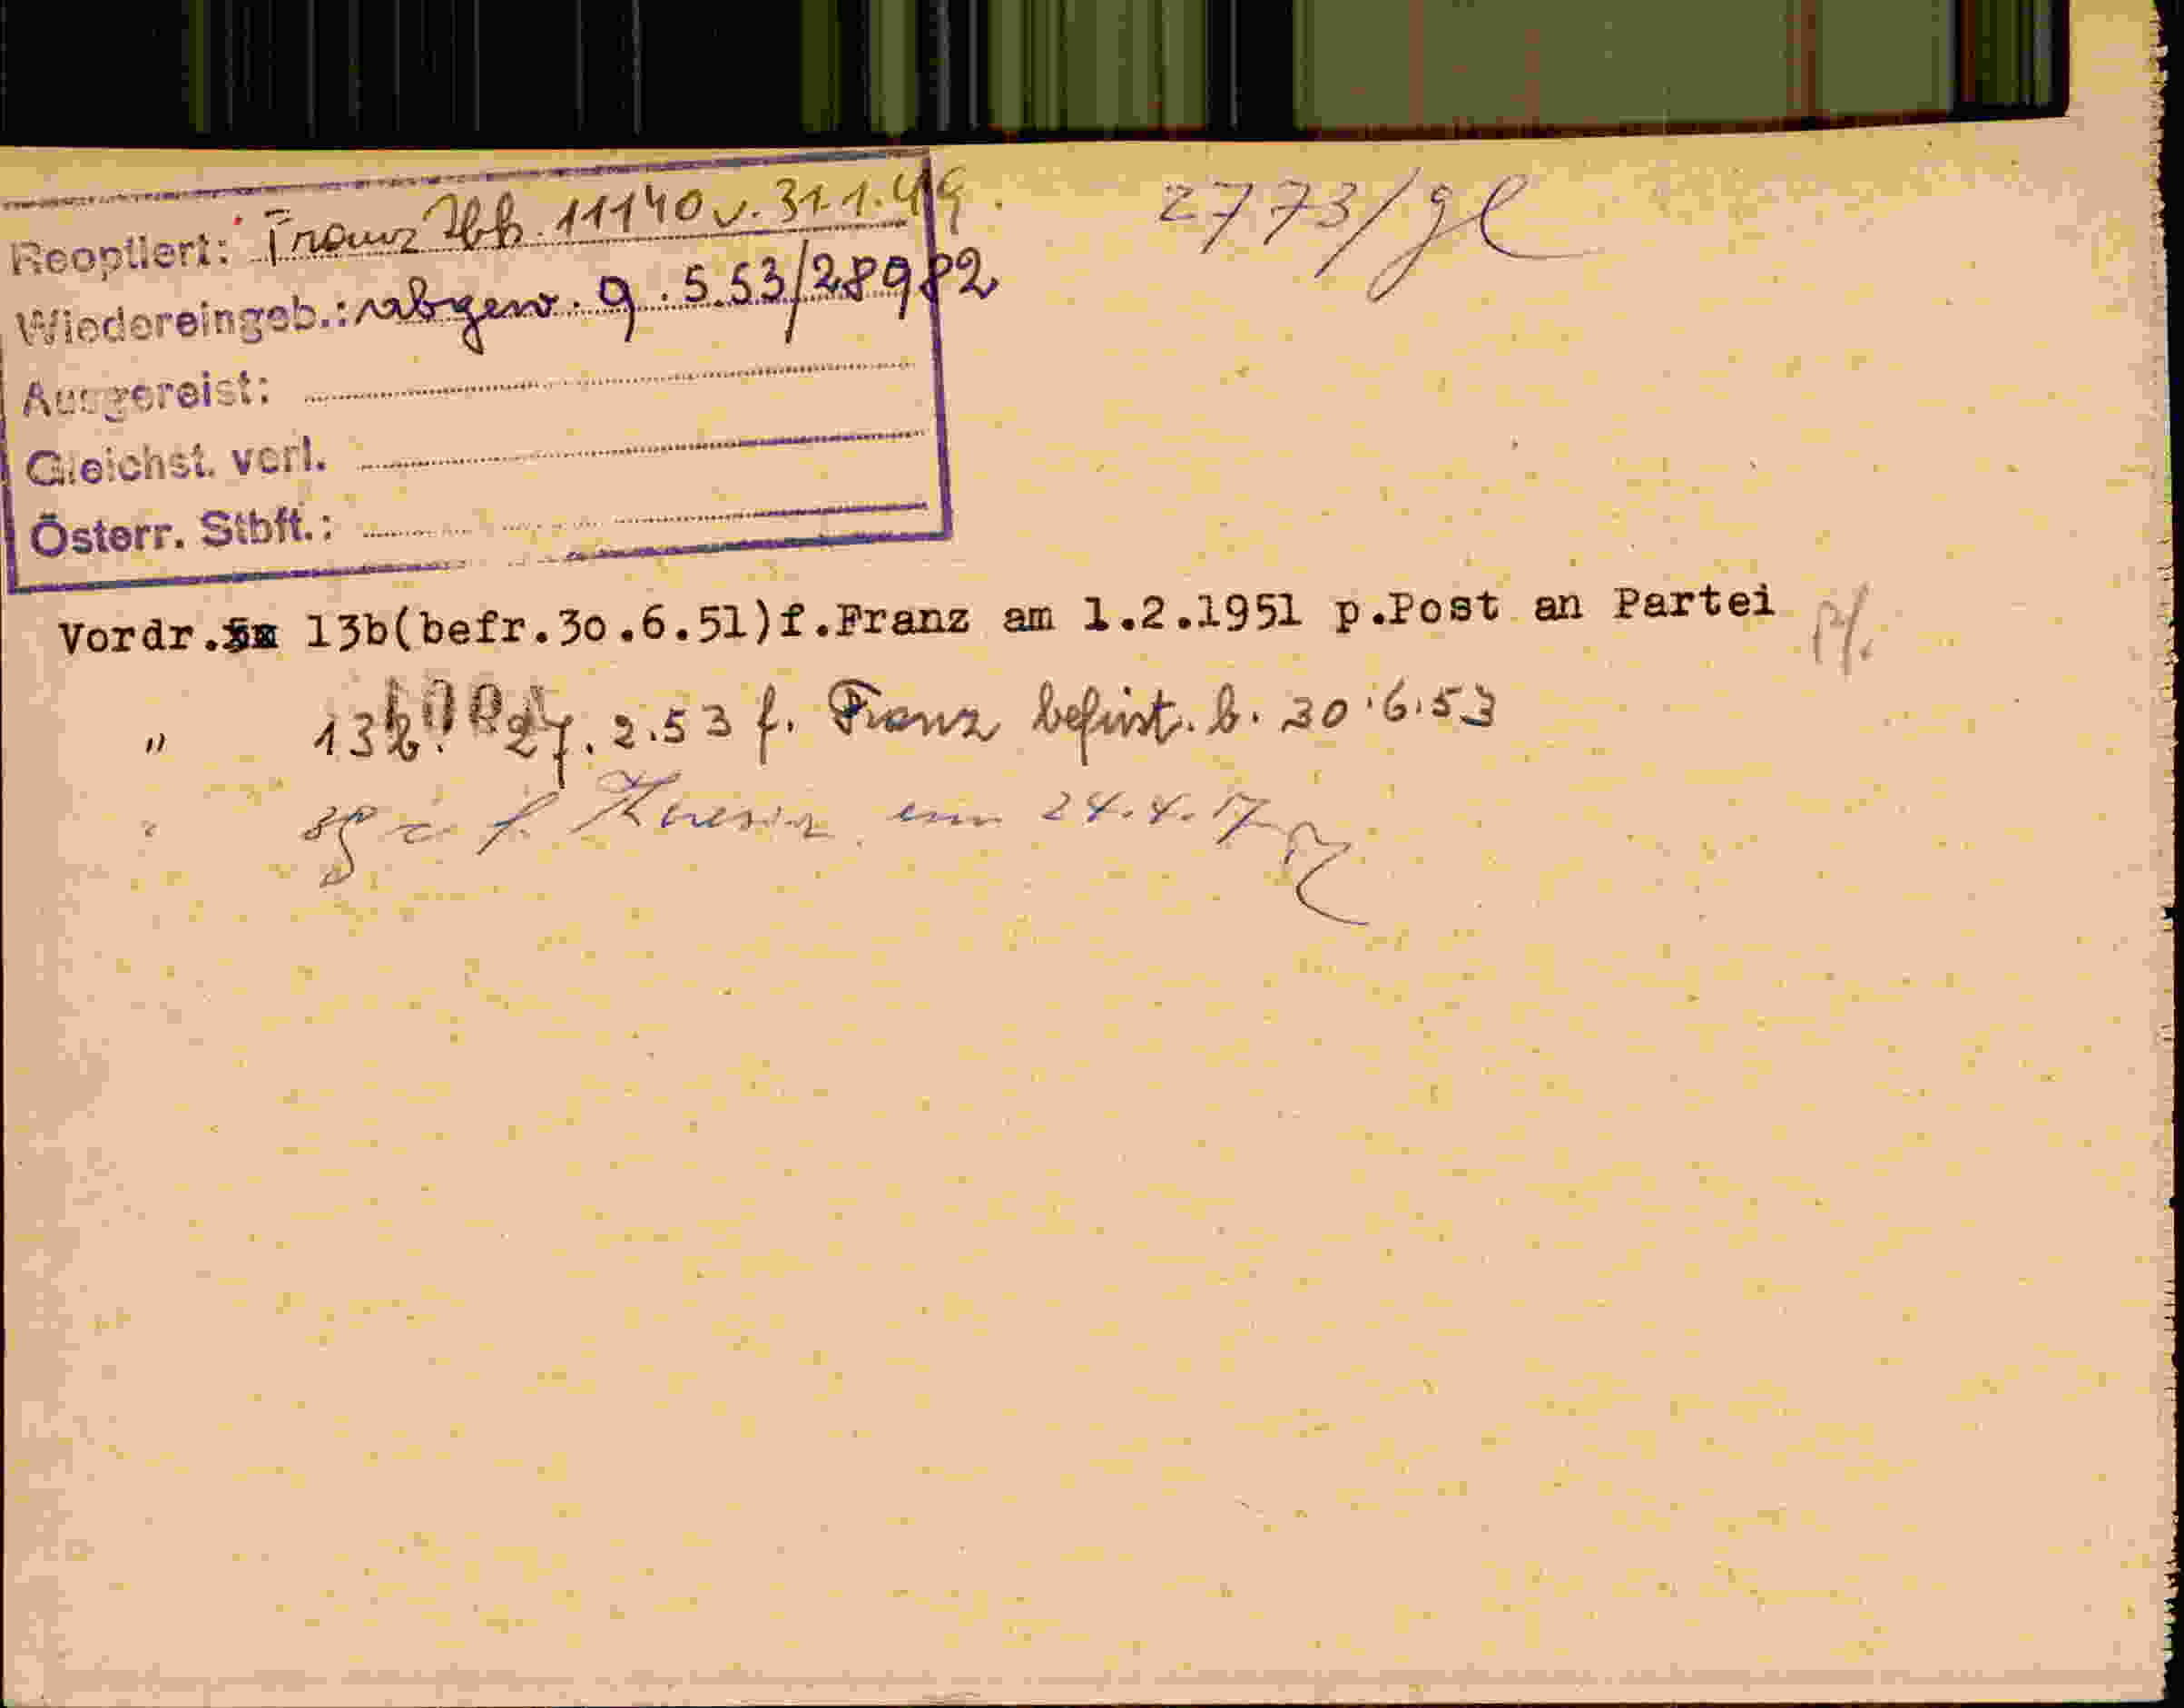 Reoptiert: Franz Abh. 11140 v. 31.1.49.
2773/gl
Wiedereingeb.: abgew. 9.5.53/28982
Ausgereist:
Gleichst. verl.
Österr. Stbft.:
Vordr. 13b(befr.30.6.51)f.Franz am 1.2.1951 p.Post an Partei
" 13b 27.2.53 f. Franz befrist. b. 30.6.53
f. Theresia am 24.4.